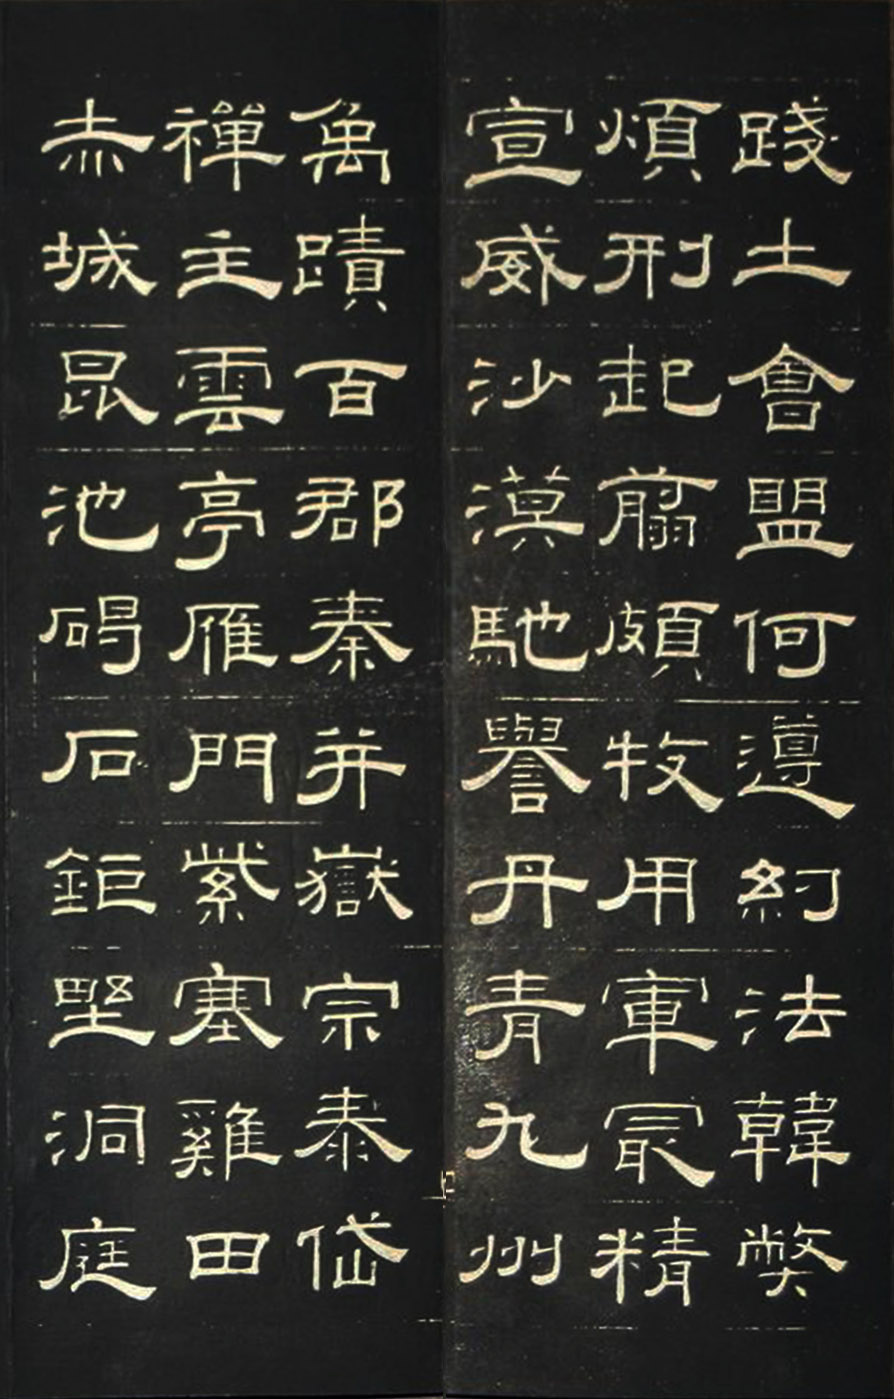 踐土會盟何遵約法韓弊
煩刑起翦頗牧用軍最精
宣威沙漠馳譽丹青九州
禹蹟百郡秦并嶽宗泰岱
禪主雲亭雁門紫塞雞田
赤城昆池碣石鉅野洞庭